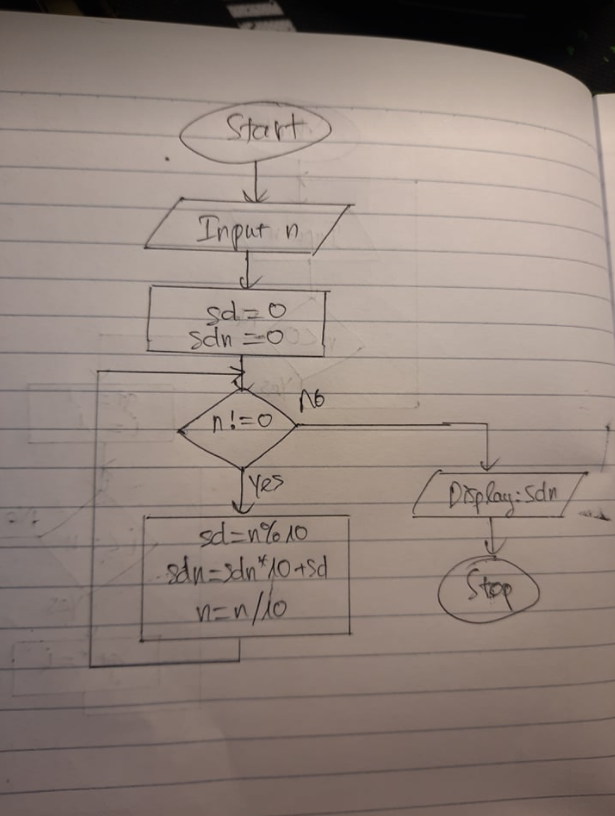 Start
Input n
sd=0
sdn=0
n!=0
No
Yes
sd=n%10
sdn=sdn*10+sd
n=n/10
Display:sdn
Stop